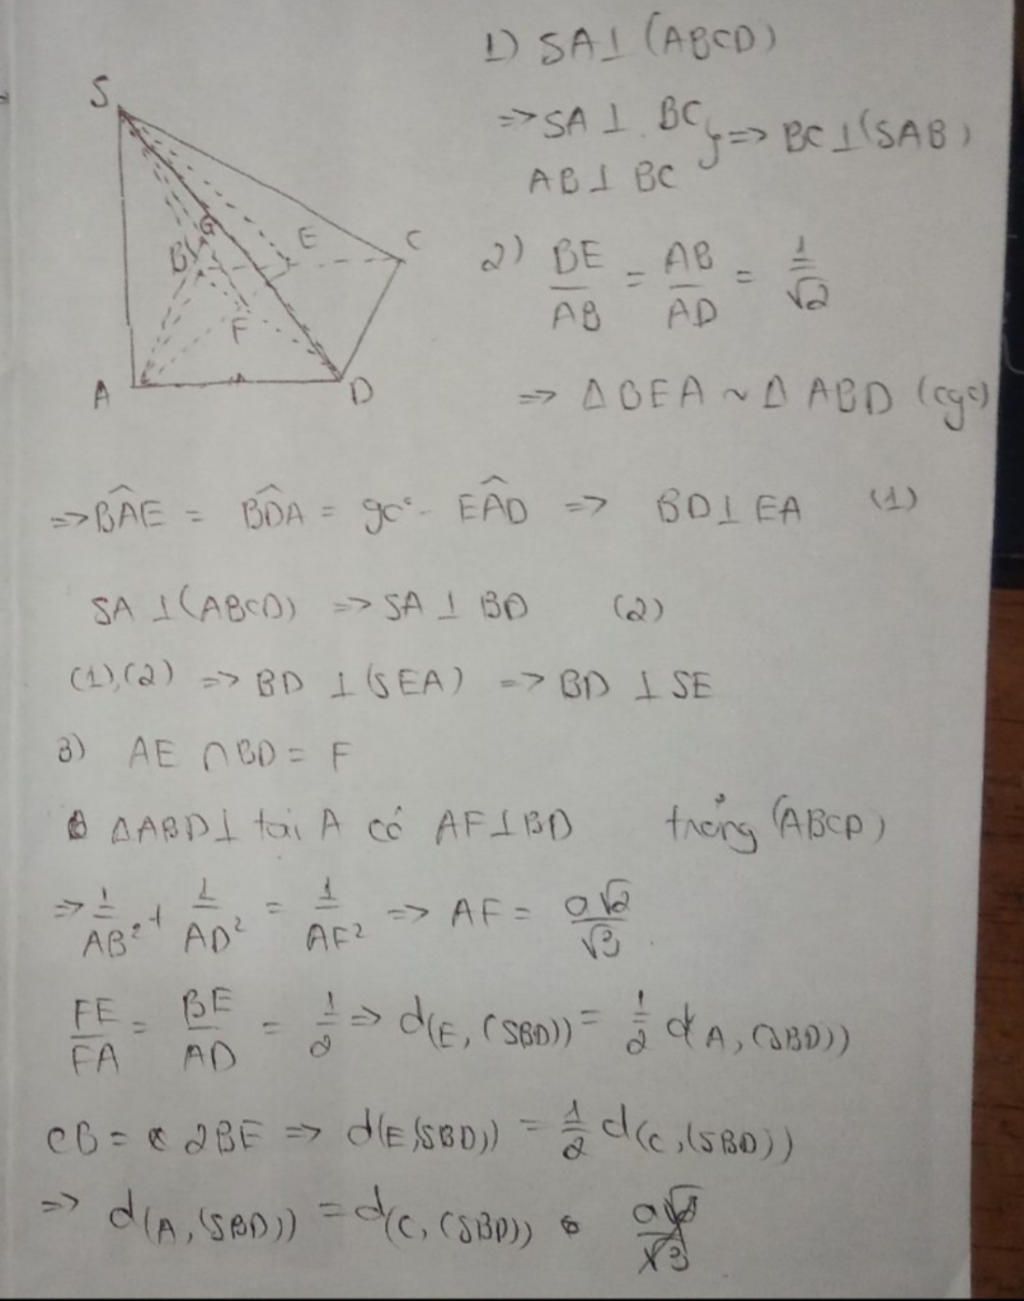 S
G
E
C
B
F
A
D
1) SA⊥(ABCD)
=> SA ⊥ BC } => BC⊥(SAB)
AB⊥ BC
2) BE/AB = AB/AD = 1/√2
=> Δ BEA ~ Δ ABD (cgc)
=> BÂE = BD̂A = 90° - EÂD => BD⊥EA (1)
SA⊥(ABCD) => SA ⊥ BD (2)
(1),(2) => BD ⊥(SEA) => BD ⊥ SE
3) AE ∩ BD = F
ΔABD⊥ tại A có AF⊥BD trong (ABCD)
=> 1/AB² + 1/AD² = 1/AF² => AF = a√2/√3
FE/FA = BE/AD = 1/2 => d(E, (SBD)) = 1/2 d(A, (SBD))
CB = 2BE => d(E,(SBD)) = 1/2 d(C,(SBD))
=> d(A,(SBD)) = d(C,(SBD))